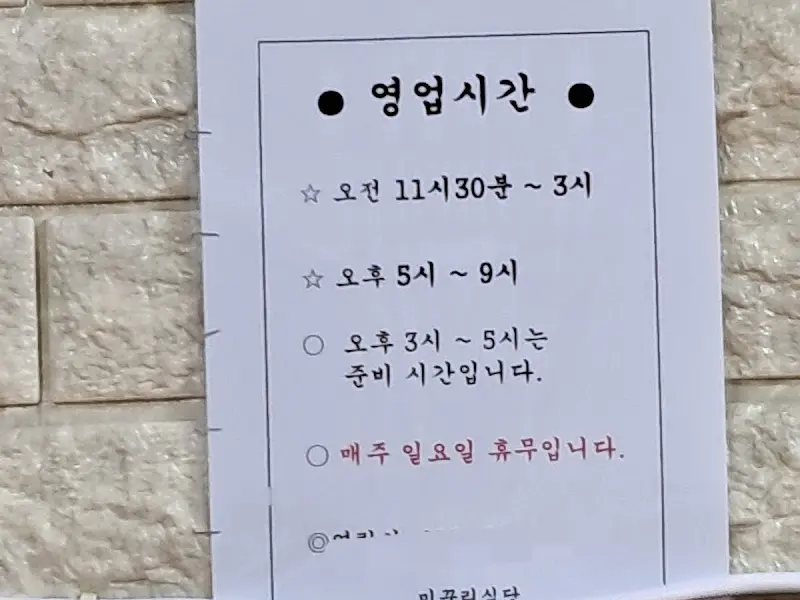 ● 영업시간 ●
☆ 오전 11시30분 ~ 3시
☆ 오후 5시 ~ 9시
○ 오후 3시 ~ 5시는
준비 시간입니다.
○ 매주 일요일 휴무입니다.
◎